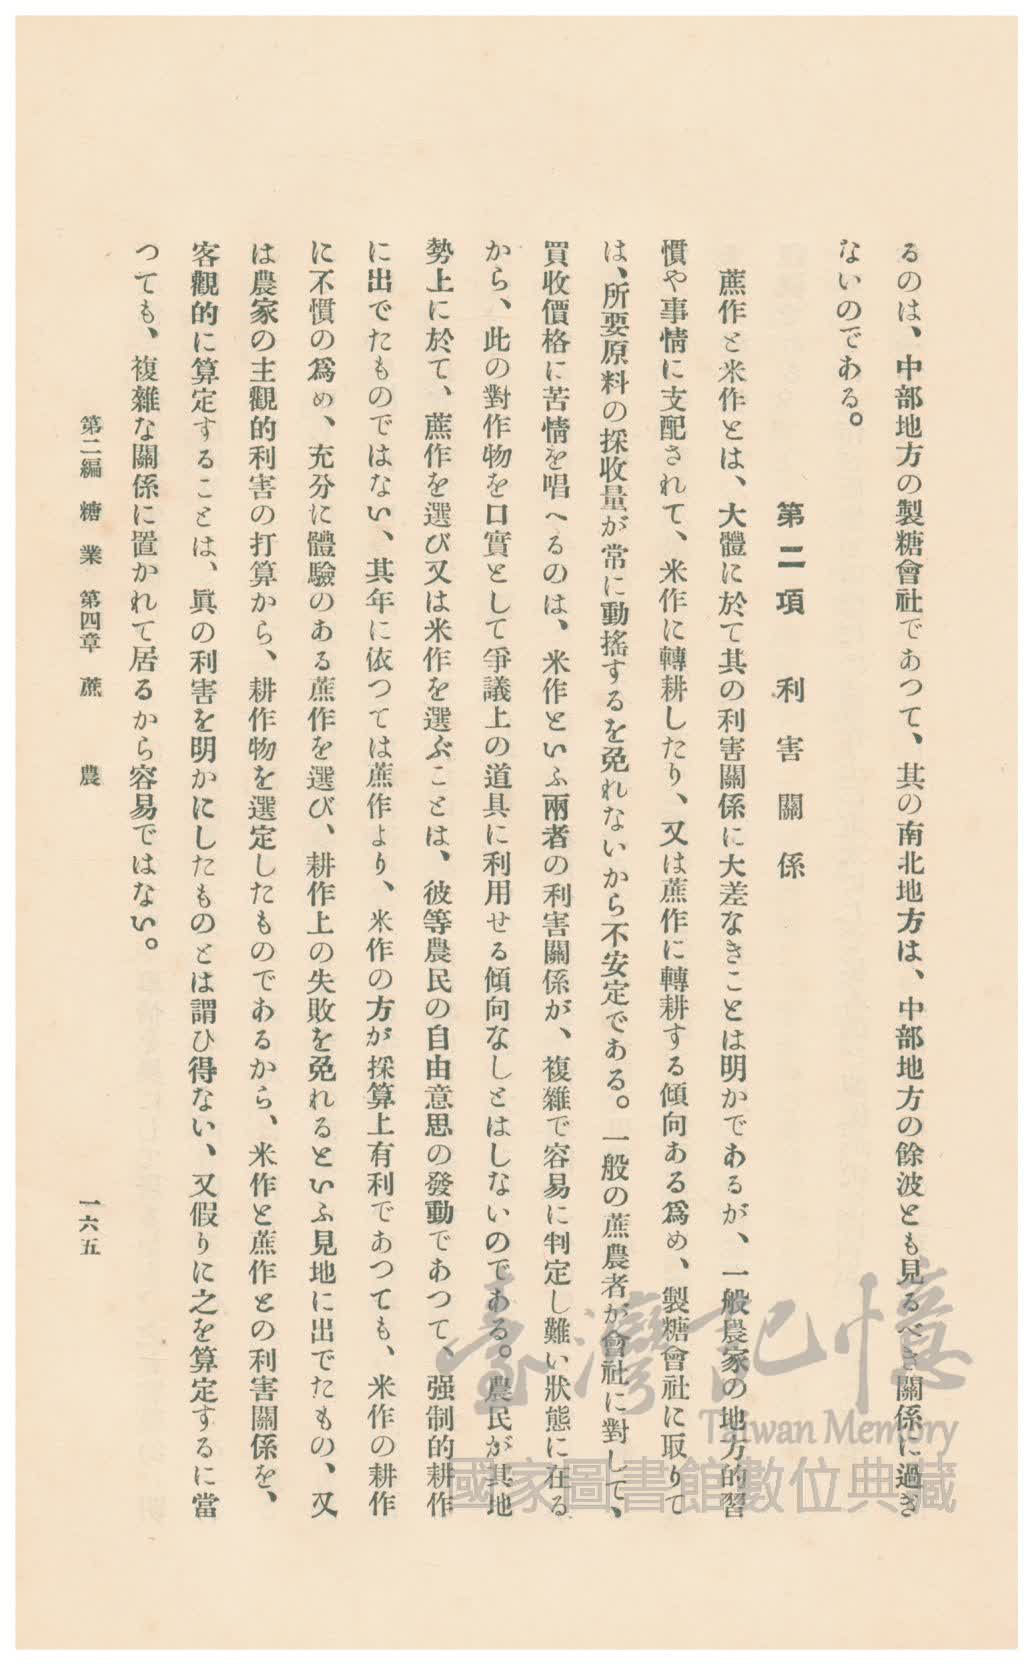 るのは、中部地方の製糖會社であつて、其の南北地方は、中部地方の餘波とも見るべき關係に過ぎ
ないのである。
第二項　利害關係
蔗作と米作とは、大體に於て其の利害關係に大差なきことは明かであるが、一般農家の地方的習
慣や事情に支配されて、米作に轉耕したり、又は蔗作に轉耕する傾向ある爲め、製糖會社に取りて
は、所要原料の採收量が常に動搖するを免れないから不安定である。一般の蔗農者が會社に對して、
買收價格に苦情を唱へるのは、米作といふ兩者の利害關係が、複雜で容易に判定し難い狀態に在る
から、此の對作物を口實として爭議上の道具に利用せる傾向なしとはしないのである。農民が其地
勢上に於て、蔗作を選び又は米作を選ぶことは、彼等農民の自由意思の發動であつて、强制的耕作
に出でたものではない、其年に依つては蔗作より、米作の方が採算上有利であつても、米作の耕作
に不慣の爲め、充分に體驗のある蔗作を選び、耕作上の失敗を免れるといふ見地に出でたもの、又
は農家の主觀的利害の打算から、耕作物を選定したものであるから、米作と蔗作との利害關係を、
客觀的に算定することは、眞の利害を明かにしたものとは謂ひ得ない、又假りに之を算定するに當
つても、複雜な關係に置かれて居るから容易ではない。
第二編　糖業　第四章　蔗農
一六五
臺灣記憶
Taiwan Memory
國家圖書館數位典藏